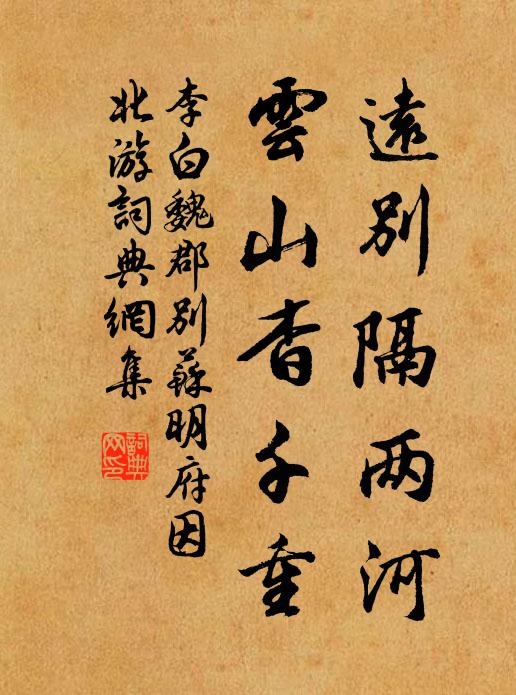 遠別隔两河
雲山杳千重
李白魏郡別蘇明府因
北游詞典網集
詞典
网印